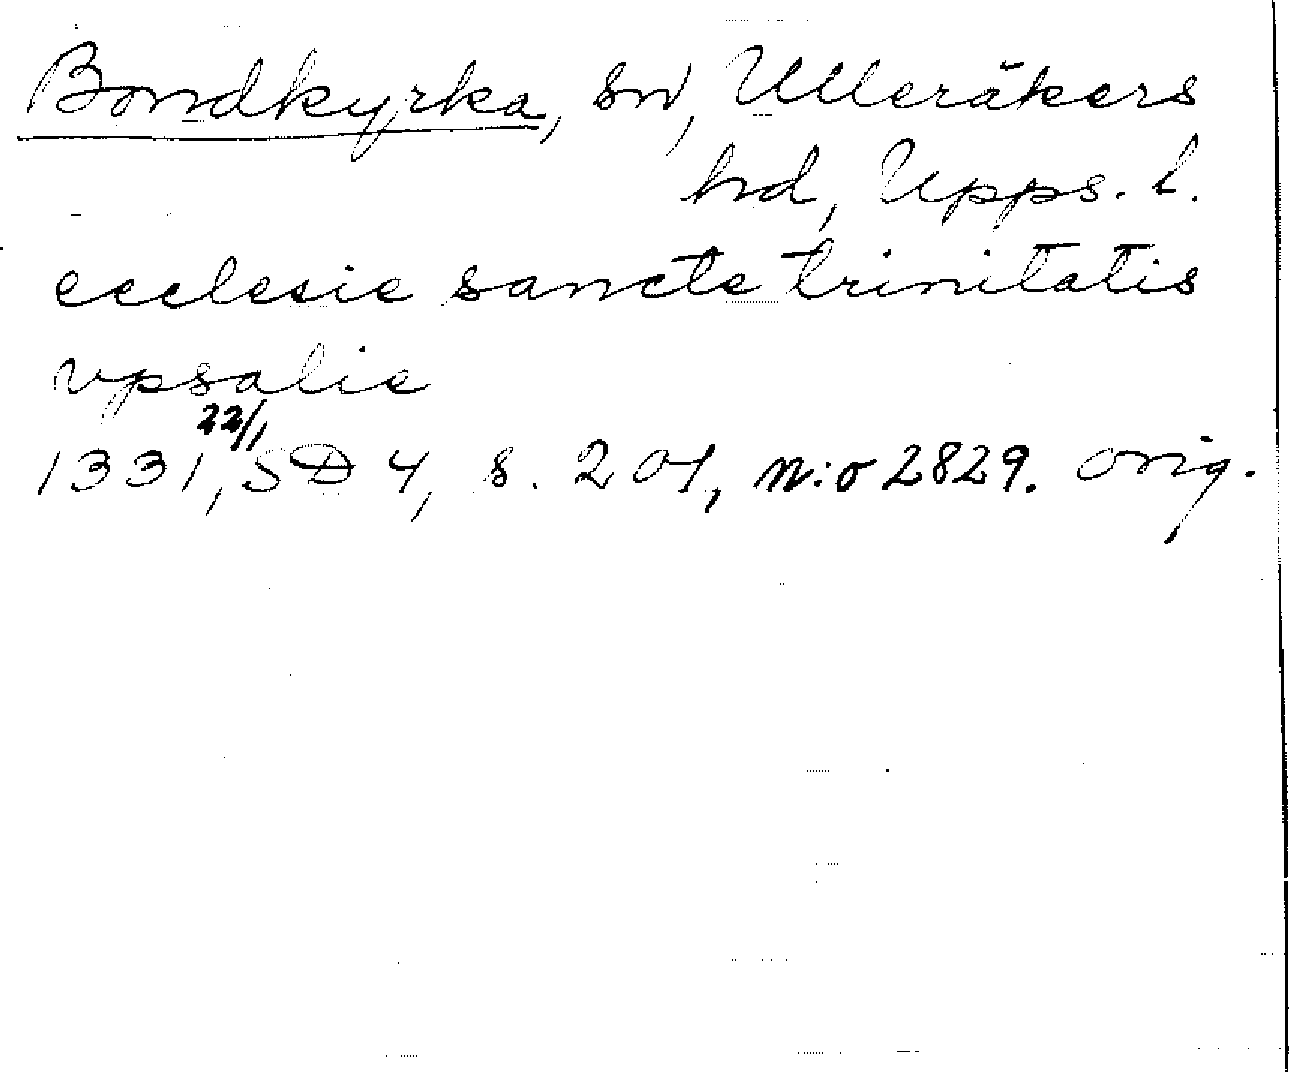 Bondkyrka, sn, Ulleråkers
hd, Upps. l.
ecclesie sancte trinitatis
vpsalie
1331, 22/1 SD 4, s. 201, n:o 2829. orig.